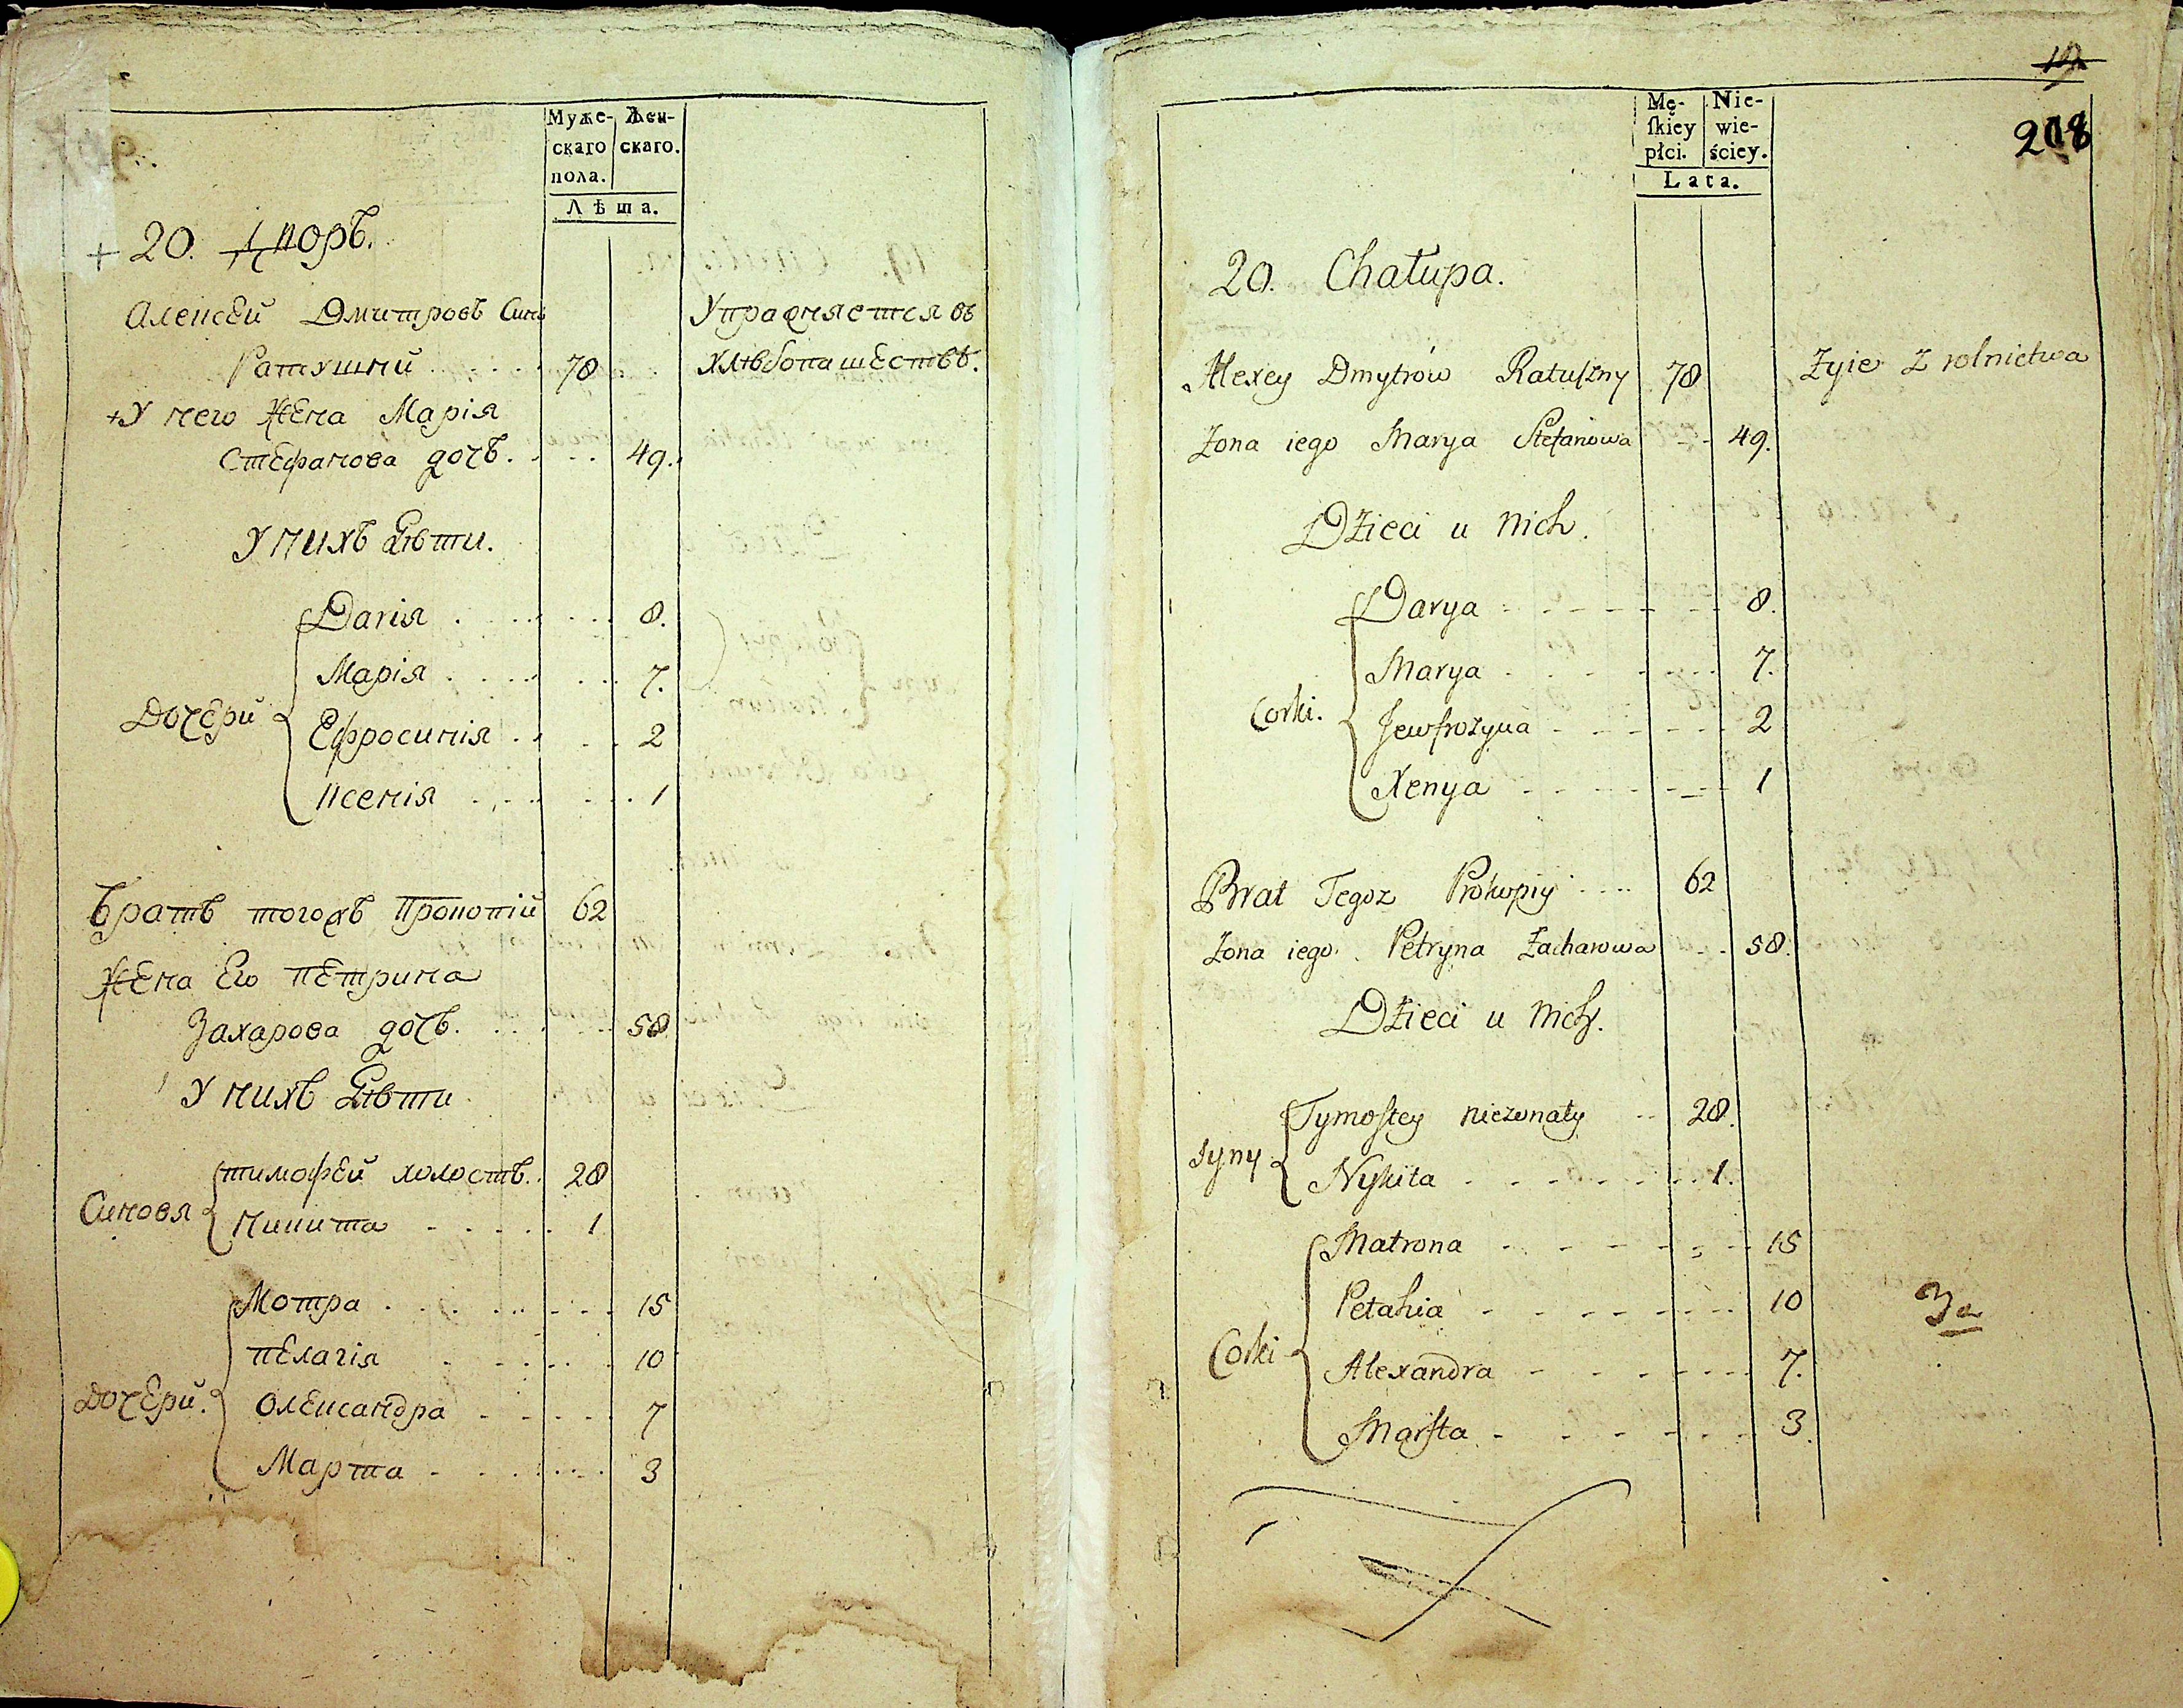 Муже- Жен-
скаго скаго.
пола.
Лѣта.
+ 20. Дворъ.
Алексей Дмитровъ Синъ Упражняется въ
Ратушни 78 хлѣбопашествѣ.
+У него жена Марія
Стефанова дочъ. 49.
У нихъ дѣти.
Дочери
Дария 8.
Марія 7.
Ефросинія 2
Ксенія 1
Братъ тогожъ Прокопій 62
Жена его Петрина
Захарова дочъ. 58
У нихъ дѣти
Синовя
Тимофей холостъ. 28
Никита 1
Дочери.
Мотра 15
Пелагія 10
Олександра 7
Марта 3
19
208
Mę- Nie-
ſkiey wie-
płci. ściey.
Lata.
20. Chałupa.
Alexey Dmytrów Ratuſzny 78 Żyie z rolnictwa
Żona iego Marya Stefanowa 49.
Dzieci u nich.
Corki.
Darya 8.
Marya 7.
Jewfrozyna 2
Xenya 1
Brat Tegoz Prokopiy 62
Żona iego Petryna Zacharowa 58.
Dzieci u nich.
Syny
Tymoftey niezonaty 28.
Nykita 1.
Corki
Matrona 15
Pelahia 10
Alexandra 7.
Marfta 3.